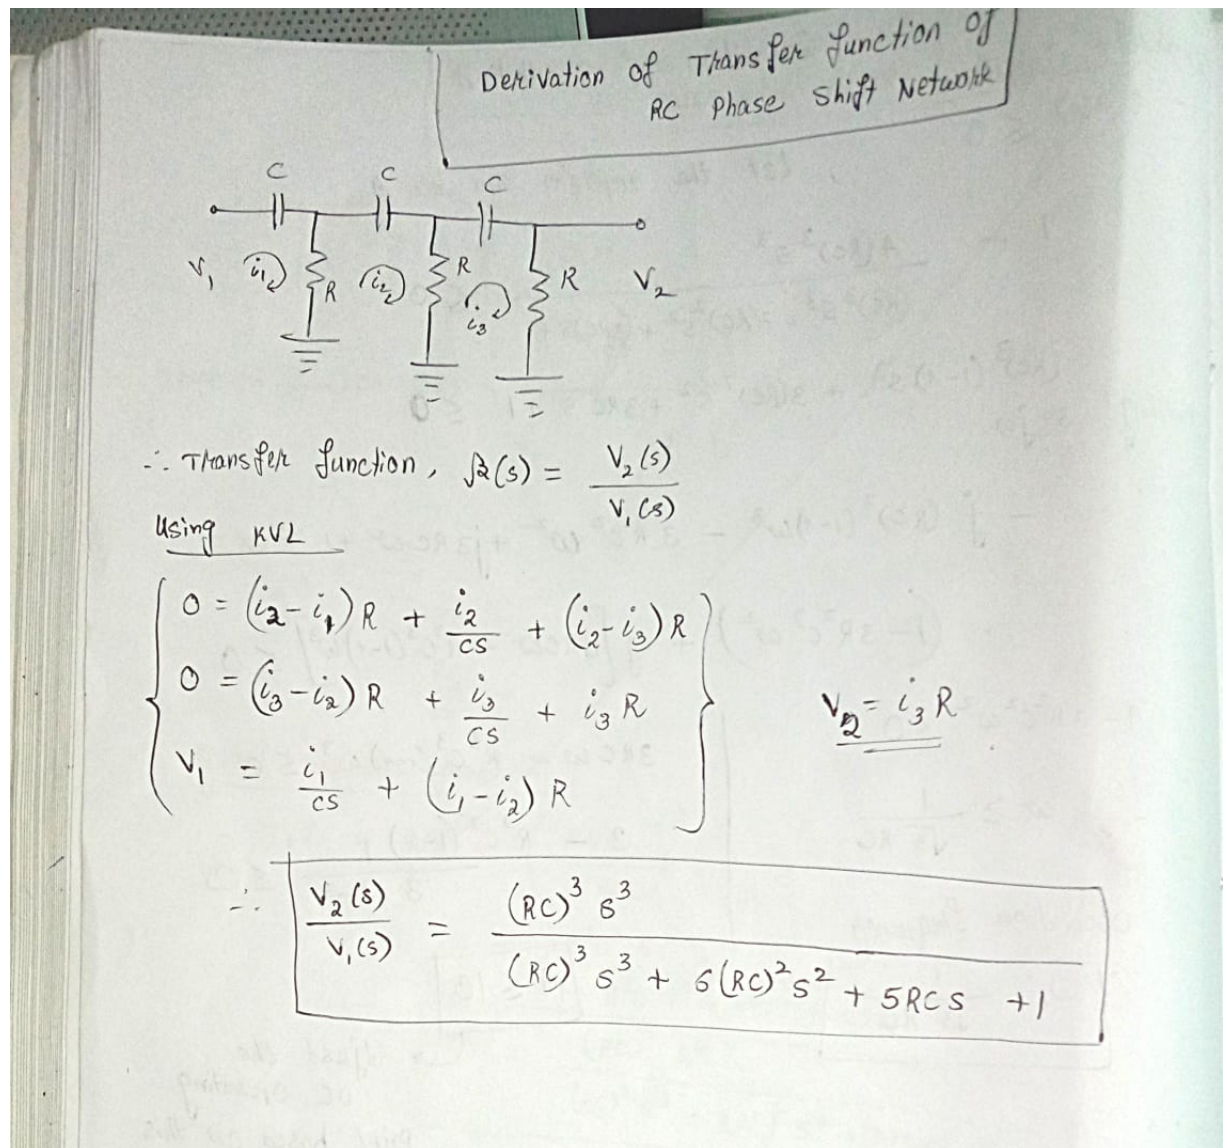 Derivation of Transfer function of
RC Phase Shift Network
C C C
V₁ i₁ R i₂ R i₃ R V₂
∴ Transfer function, β(s) = V₂(s) / V₁(s)
Using KVL
0 = (i₂-i₁) R + i₂/CS + (i₂-i₃) R
0 = (i₃-i₂) R + i₃/CS + i₃ R
V₂ = i₃ R
V₁ = i₁/CS + (i₁-i₂) R
∴ V₂(s) / V₁(s) = (RC)³ s³ / (RC)³ s³ + 6(RC)² s² + 5RCS + 1